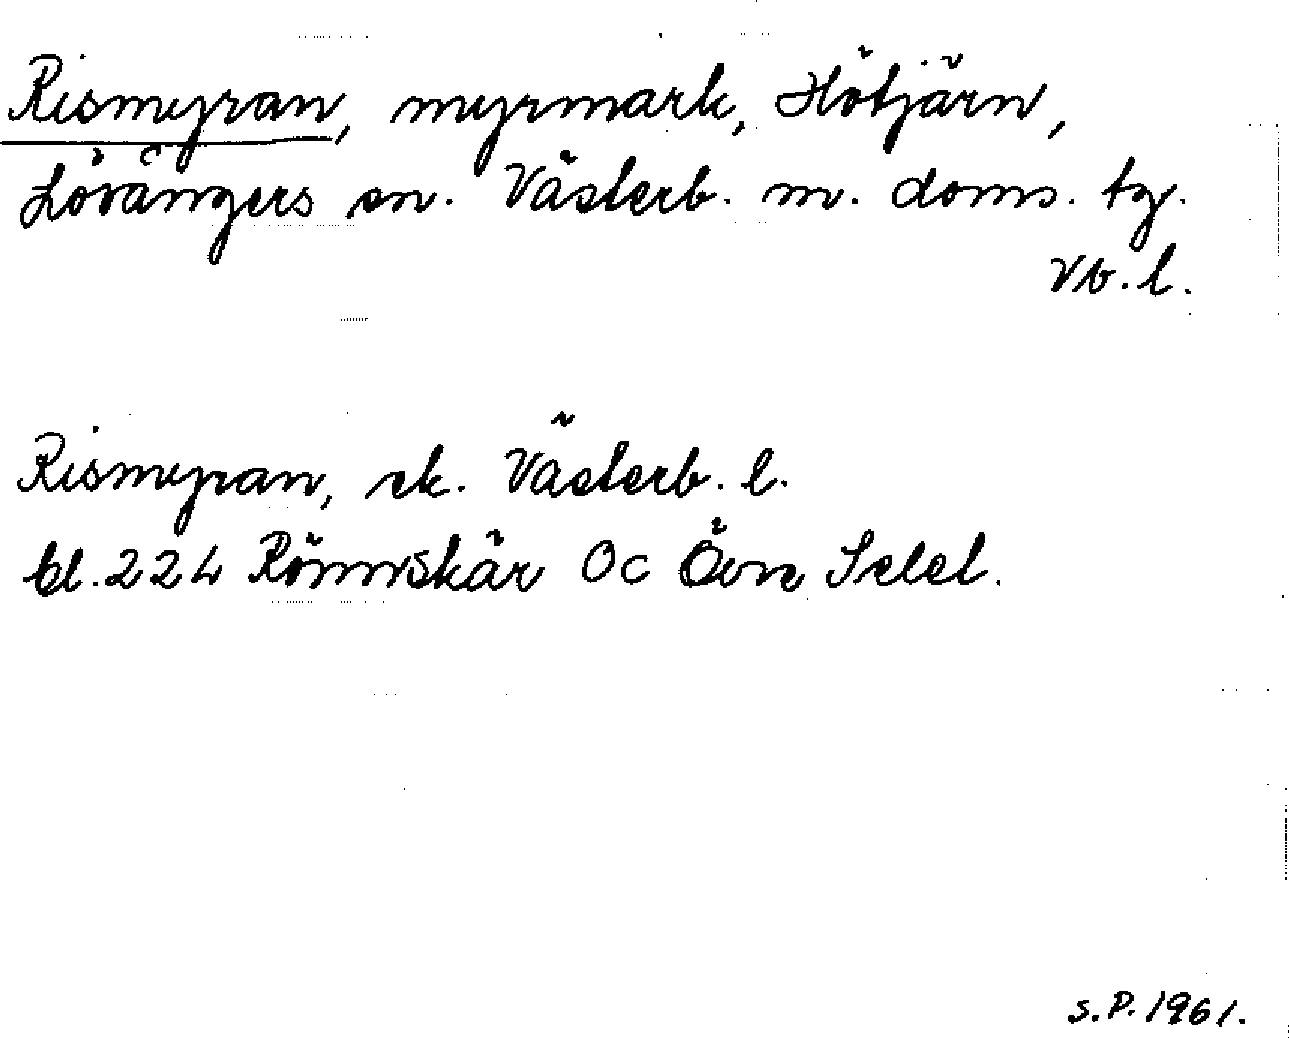 Rismyran, myrmark, Hötjärn,
Lövångers sn. Västerb. m. doms. tg.
Vb. l.
Rismyran, ek. Västerb. l.
bl. 224 Rönnskär Oc Övre Selet.
S.P. 1961.